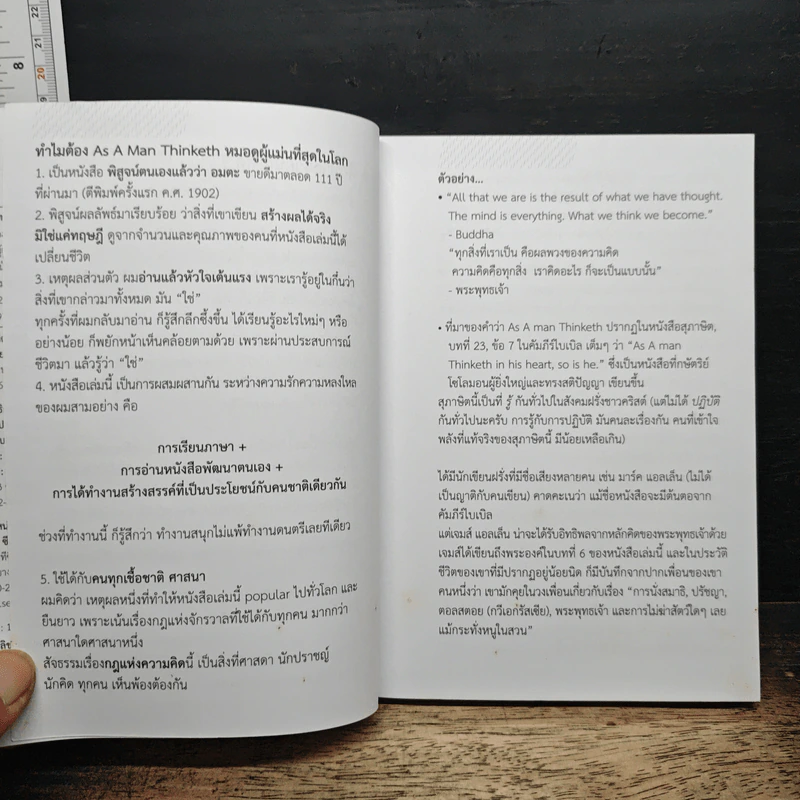 ทำไมต้อง As A Man Thinketh หมอดูผู้แม่นที่สุดในโลก
1. เป็นหนังสือ พิสูจน์ตนเองแล้วว่า อมตะ ขายดีมาตลอด 111 ปี
ที่ผ่านมา (ตีพิมพ์ครั้งแรก ค.ศ. 1902)
2. พิสูจน์ผลลัพธ์มาเรียบร้อย ว่าสิ่งที่เขาเขียน สร้างผลได้จริง
มิใช่แค่ทฤษฎี ดูจากจำนวนและคุณภาพของคนที่หนังสือเล่มนี้ได้
เปลี่ยนชีวิต
3. เหตุผลส่วนตัว ผมอ่านแล้วหัวใจเต้นแรง เพราะเรารู้อยู่ในกึ๋นว่า
สิ่งที่เขากล่าวมาทั้งหมด มัน “ใช่”
ทุกครั้งที่ผมกลับมาอ่าน ก็รู้สึกลึกซึ้งขึ้น ได้เรียนรู้อะไรใหม่ๆ หรือ
อย่างน้อย ก็พยักหน้าเห็นคล้อยตามด้วย เพราะผ่านประสบการณ์
ชีวิตมา แล้วรู้ว่า “ใช่”
4. หนังสือเล่มนี้ เป็นการผสมผสานกัน ระหว่างความรักความหลงใหล
ของผมสามอย่าง คือ
การเรียนภาษา +
การอ่านหนังสือพัฒนาตนเอง +
การได้ทำงานสร้างสรรค์ที่เป็นประโยชน์กับคนชาติเดียวกัน
ช่วงที่ทำงานนี้ ก็รู้สึกว่า ทำงานสนุกไม่แพ้ทำงานดนตรีเลยทีเดียว
5. ใช้ได้กับคนทุกเชื้อชาติ ศาสนา
ผมคิดว่า เหตุผลหนึ่งที่ทำให้หนังสือเล่มนี้ popular ไปทั่วโลก และ
ยืนยาว เพราะเน้นเรื่องกฎแห่งจักรวาลที่ใช้ได้กับทุกคน มากกว่า
ศาสนาใดศาสนาหนึ่ง
สัจธรรมเรื่องกฎแห่งความคิดนี้ เป็นสิ่งที่ศาสดา นักปราชญ์
นักคิด ทุกคน เห็นพ้องต้องกัน
ตัวอย่าง...
• “All that we are is the result of what we have thought.
The mind is everything. What we think we become.”
- Buddha
“ทุกสิ่งที่เราเป็น คือผลพวงของความคิด
ความคิดคือทุกสิ่ง เราคิดอะไร ก็จะเป็นแบบนั้น”
- พระพุทธเจ้า
• ที่มาของคำว่า As A man Thinketh ปรากฏในหนังสือสุภาษิต,
บทที่ 23, ข้อ 7 ในคัมภีร์ไบเบิล เต็มๆ ว่า “As A man
Thinketh in his heart, so is he.” ซึ่งเป็นหนังสือที่กษัตริย์
โซโลมอนผู้ยิ่งใหญ่และทรงสติปัญญา เขียนขึ้น
สุภาษิตนี้เป็นที่ รู้ กันทั่วไปในสังคมฝรั่งชาวคริสต์ (แต่ไม่ได้ ปฏิบัติ
กันทั่วไปนะครับ การรู้กับการปฏิบัติ มันคนละเรื่องกัน คนที่เข้าใจ
พลังที่แท้จริงของสุภาษิตนี้ มีน้อยเหลือเกิน)
ได้มีนักเขียนฝรั่งที่มีชื่อเสียงหลายคน เช่น มาร์ค แอลเล็น (ไม่ได้
เป็นญาติกับคนเขียน) คาดคะเนว่า แม้ชื่อหนังสือจะมีต้นตอจาก
คัมภีร์ไบเบิล
แต่เจมส์ แอลเล็น น่าจะได้รับอิทธิพลจากหลักคิดของพระพุทธเจ้าด้วย
เจมส์ได้เขียนถึงพระองค์ในบทที่ 6 ของหนังสือเล่มนี้ และในประวัติ
ชีวิตของเขาที่มีปรากฏอยู่น้อยนิด ก็มีบันทึกจากปากเพื่อนของเขา
คนหนึ่งว่า เขามักคุยในวงเพื่อนเกี่ยวกับเรื่อง “การนั่งสมาธิ, ปรัชญา,
ตอลสตอย (กวีเอกรัสเซีย), พระพุทธเจ้า และการไม่ฆ่าสัตว์ใดๆ เลย
แม้กระทั่งหนูในสวน”